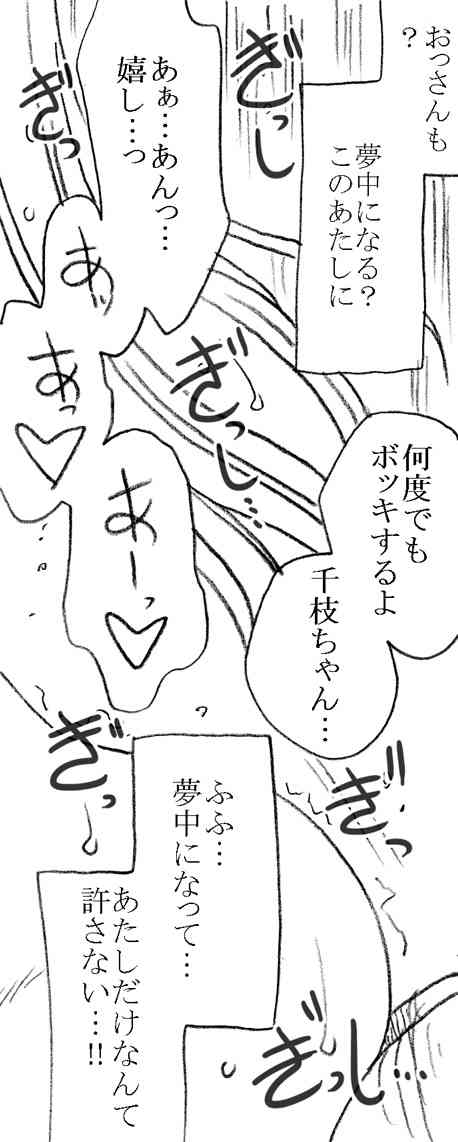 おっさんも
？
夢中になる？
このあたしに
ぎっし
あぁ…あんっ…
嬉し…っ
ぎっ
あっ
あっ♡
あーっ♡
ぎっし…
何度でも
ボッキするよ
千枝ちゃん…
ぎっ
ぎっ
ふふ…
夢中になって…
あたしだけなんて
許さない…!!
ぎっし…